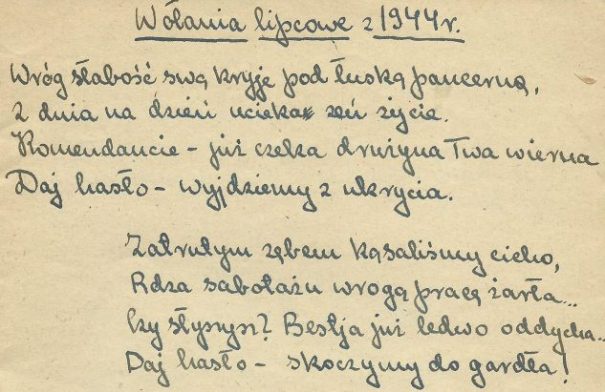 Wołania lipcowe z 1944 r.
Wróg słabość swą kryje pod łuską pancerną,
Z dnia na dzień ucieka zeń życie.
Komendancie - już czeka drużyna Twa wierna
Daj hasło - wyjdziemy z ukrycia.
Zatrutym zębem kąsaliśmy cicho,
Rdza sabotażu wrogą pracę żarła...
Czy słyszysz? Bestja już ledwo oddycha...
Daj hasło - skoczymy do gardła!